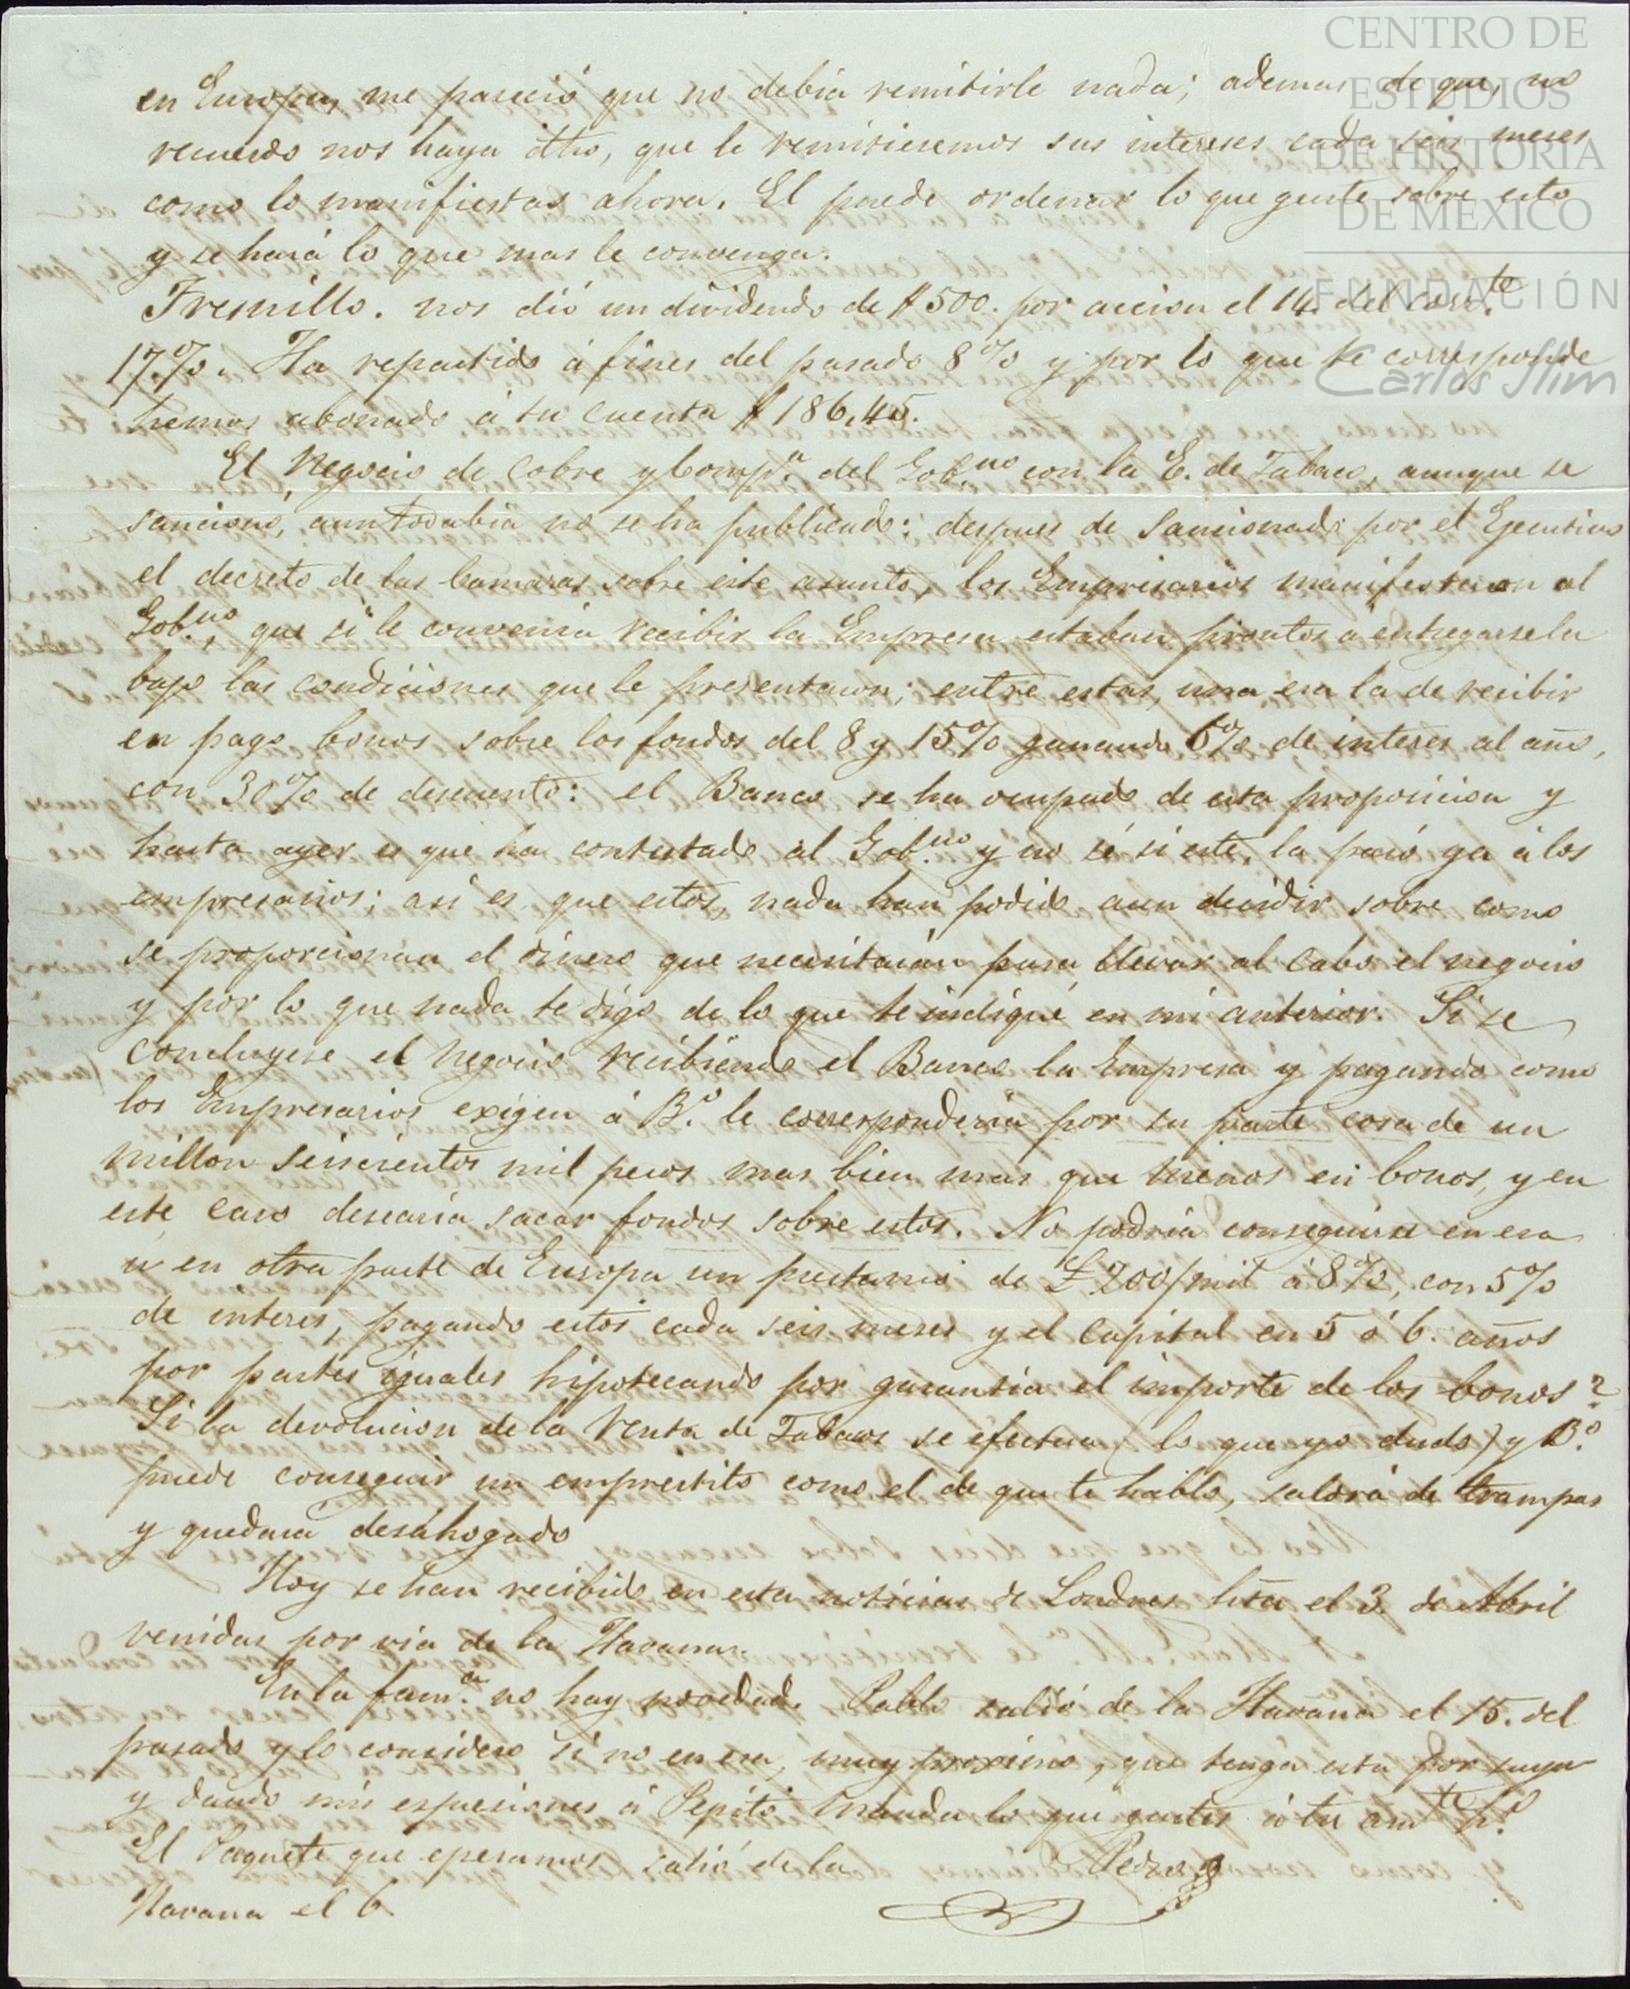 CENTRO DE
ESTUDIOS
DE HISTORIA
DE MEXICO
FUNDACIÓN
Carlos Slim
en Europa, me pareció que no debia remitirle nada; ademas de que, no
recuerdo nos haya dho, que le remitiesemos sus intereses cada seis meses
como lo manifiestas ahora. El puede ordenar lo que guste sobre esto
y se hará lo que mas le convenga.
Fresnillo. nos dió un dividendo de $500. por accion el 14. del corr.te
17.%. Ha repartido á fines del pasado 8% y por lo que te corresponde
hemos abonado á tu cuenta $186,45.
El Negocio de Cobre y Comp.a del Gob.no con la E. de Tabaco, aunque se
sanciono, aun todabia no se ha publicado: despues de Sancionado por el Ejecutivo
el decreto de las Camaras sobre este asunto, los Empresarios manifestaron al
Gob.no, que si le convenia recibir la Empresa estaban prontos a entregarsela
bajo las condiciones que le presentaron; entre estas, una era la de recibir
en pago bonos sobre los fondos del 8 y 15% ganando 6% de interes al año,
con 30% de descuento: el Banco se ha ocupado de esta proposicion y
hasta ayer es que ha contestado al Gob.no y no sé si este, la pasó ya á los
empresarios; asi es que estos, nada han podido aun decidir sobre como
se proporcionan el dinero que necesitarán para llevar al cabo el negocio
y por lo que nada te digo de lo que te indiqué en mi anterior. Si se
concluyese el negocio recibiendo el Banco la Empresa y pagando como
los Empresarios exigen á B.o le corresponderia por su parte cosa de un
millon seiscientos mil pesos mas bien mas que menos en bonos, y en
este caso desearia sacar fondos sobre estos. No podria conseguirse en esa
ú en otra parte de Europa un prestamo de £ 200/mil á 8%, con 5%
de interes, pagando estos cada seis meses y el capital en 5 ó 6. años
por partes iguales hipotecando por garantia el importe de los bonos?
Si la devolucion de la Renta de Tabacos se efectua (lo que yo dudo) y B.o
puede conseguir un emprestito como el de que te hablo, saldrá de trampas
y quedara desahogado
Hoy se han recibido en esta noticias de Londres hta el 3 de Abril
venidas por via de la Havana.
En la fam.a no hay novedad. Pablo salió de la Havana el 15. del
pasado y lo considero si no en esa, muy proximo, que tenga esta por suya
y dando mis espresiones á Pepito manda lo que gustes á tu am.te h.o
El Paquete que esperamos salió de la
Pedro
Havana el 6